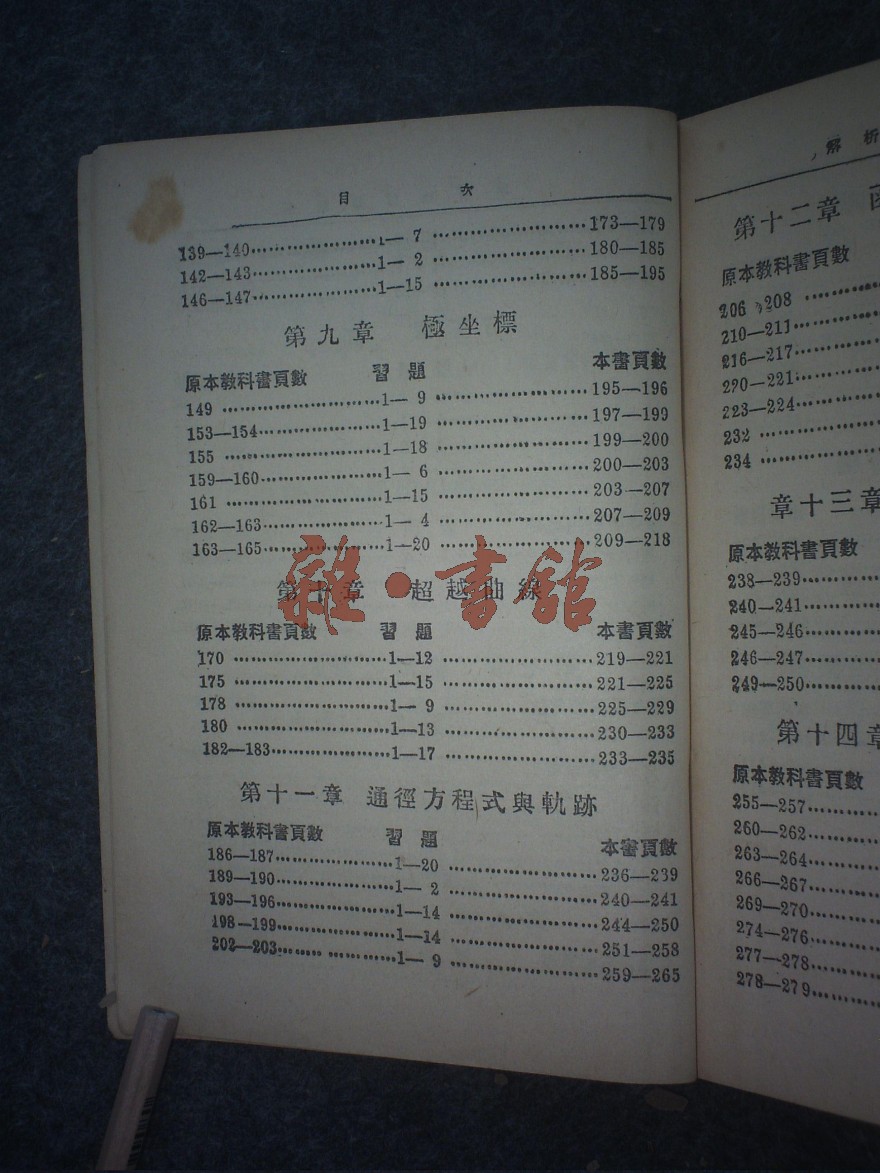 目 次
139—140 1—7 173—179
142—143 1—2 180—185
146—147 1—15 185—195
第九章 極坐標
原本教科書頁數 習題 本書頁數
149 1—9 195—196
153—154 1—19 197—199
155 1—18 199—200
159—160 1—6 200—203
161 1—15 203—207
162—163 1—4 207—209
163—165 1—20 209—218
第十章 超越曲線
雜·書館
原本教科書頁數 習題 本書頁數
170 1—12 219—221
175 1—15 221—225
178 1—9 225—229
180 1—13 230—233
182—183 1—17 233—235
第十一章 通徑方程式與軌跡
原本教科書頁數 習題 本書頁數
186—187 1—20 236—239
189—190 1—2 240—241
193—196 1—14 244—250
198—199 1—14 251—258
202—203 1—9 259—265
解析
第十二章
原本教科書頁數
206 208
210—211
216—217
220—221
223—224
232
234
章十三章
原本教科書頁數
238—239
240—241
245—246
246—247
249—250
第十四章
原本教科書頁數
255—257
260—262
263—264
266—267
269—270
274—276
277—278
278—279